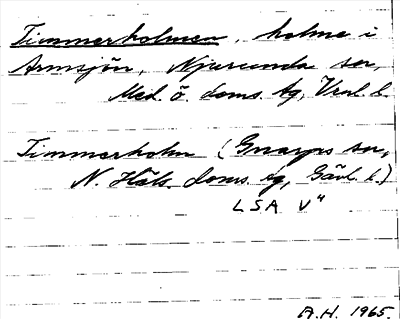 Timmerholmen, holme i
Armsjön, Njurunda sn,
Med. ö. doms. tg, Vnl l.
Timmerholm (Gnarps sn,
N. Häls. doms. tg, Gävl. l.)
LSA V"
A.H. 1965.